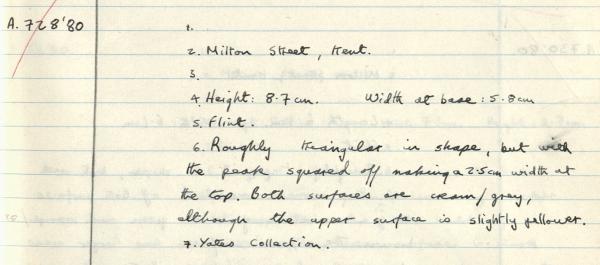 A. 728'80
1.
2. Milton Street, Kent.
3.
4. Height: 8.7cm. Width at base: 5.8cm
5. Flint.
6. Roughly triangular in shape, but with
the peak squared off making a 2.5cm width at
the top. Both surfaces are cream/grey,
although the upper surface is slightly yellower.
7. Yates Collection.